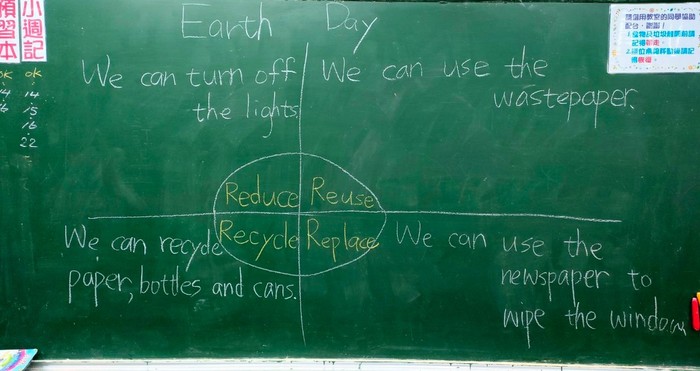 Earth Day
We can turn off
the lights.
We can use the
wastepaper.
Reduce
Reuse
Recycle
Replace
We can recycle
paper, bottles and cans.
We can use the
newspaper to
wipe the window
小週記
ok
14
15
16
22
預習本
ok